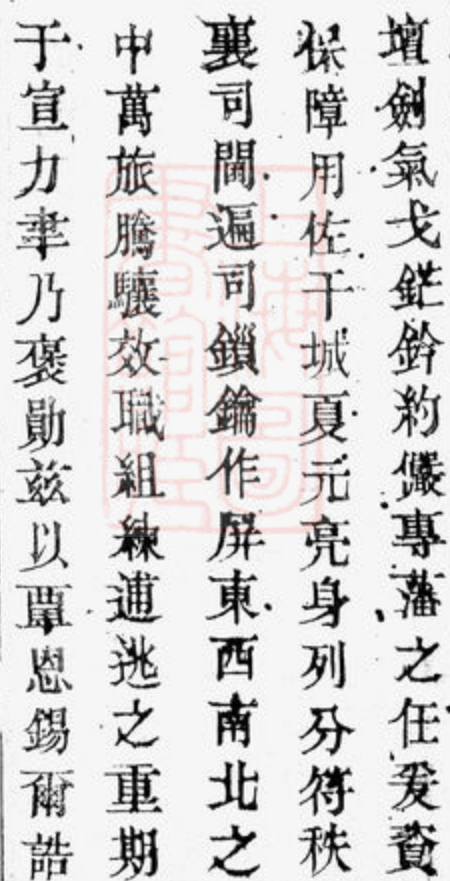 壇劍氣戈鋩鈐約儼專藩之任爰資
保障用佐干城夏元亮身列分符秩
襄司閫遍司鎖鑰作屏東西南北之
中萬旅騰驤效職組練逋逃之重期
于宣力聿乃褒勛兹以覃恩錫爾誥